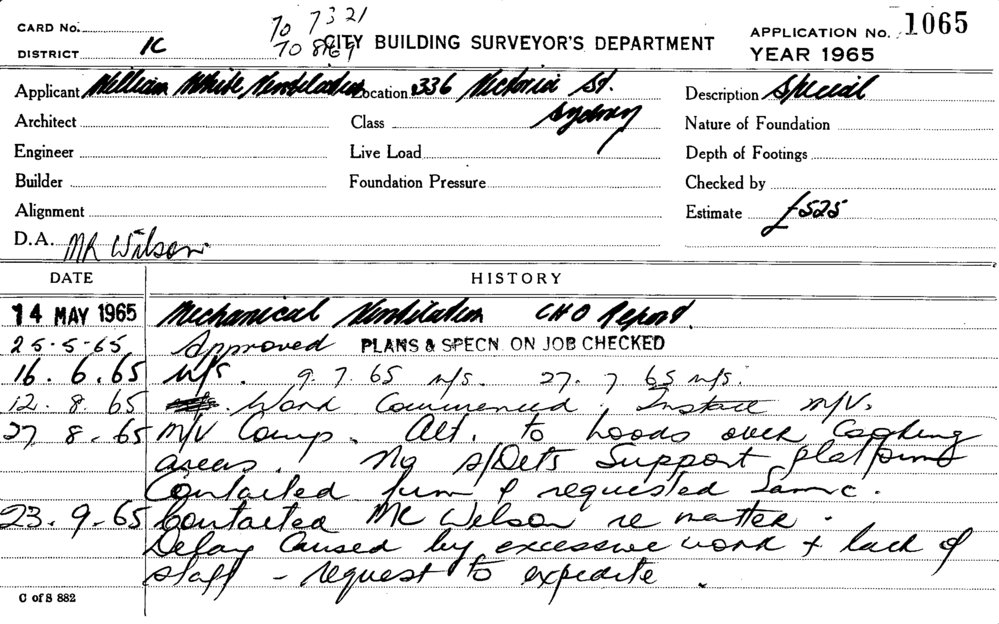 CARD No.
70 7321
70 8869
CITY BUILDING SURVEYOR'S DEPARTMENT
APPLICATION No. 1065
DISTRICT 1C
YEAR 1965
Applicant William White Ventilation Location 336 Victoria St. Sydney Description Special
Architect Class Nature of Foundation
Engineer Live Load Depth of Footings
Builder Foundation Pressure Checked by
Alignment Estimate £525
D.A. MR Wilson
DATE HISTORY
14 MAY 1965 Mechanical Ventilation CHO Report.
25-5-65 Approved PLANS & SPECN. ON JOB CHECKED
16.6.65 n/s. 9.7.65 n/s. 27.7.65 n/s.
12.8.65 Work Commenced. Install m/v.
27.8.65 M/V Comp. Alt. to hoods over Cooking
areas. No s/Dets Support platforms
Contacted firm & requested same.
23.9.65 Contacted Mr Wilson re matter.
Delay Caused by excessive work + lack of
staff - request to expedite.
C of S 882